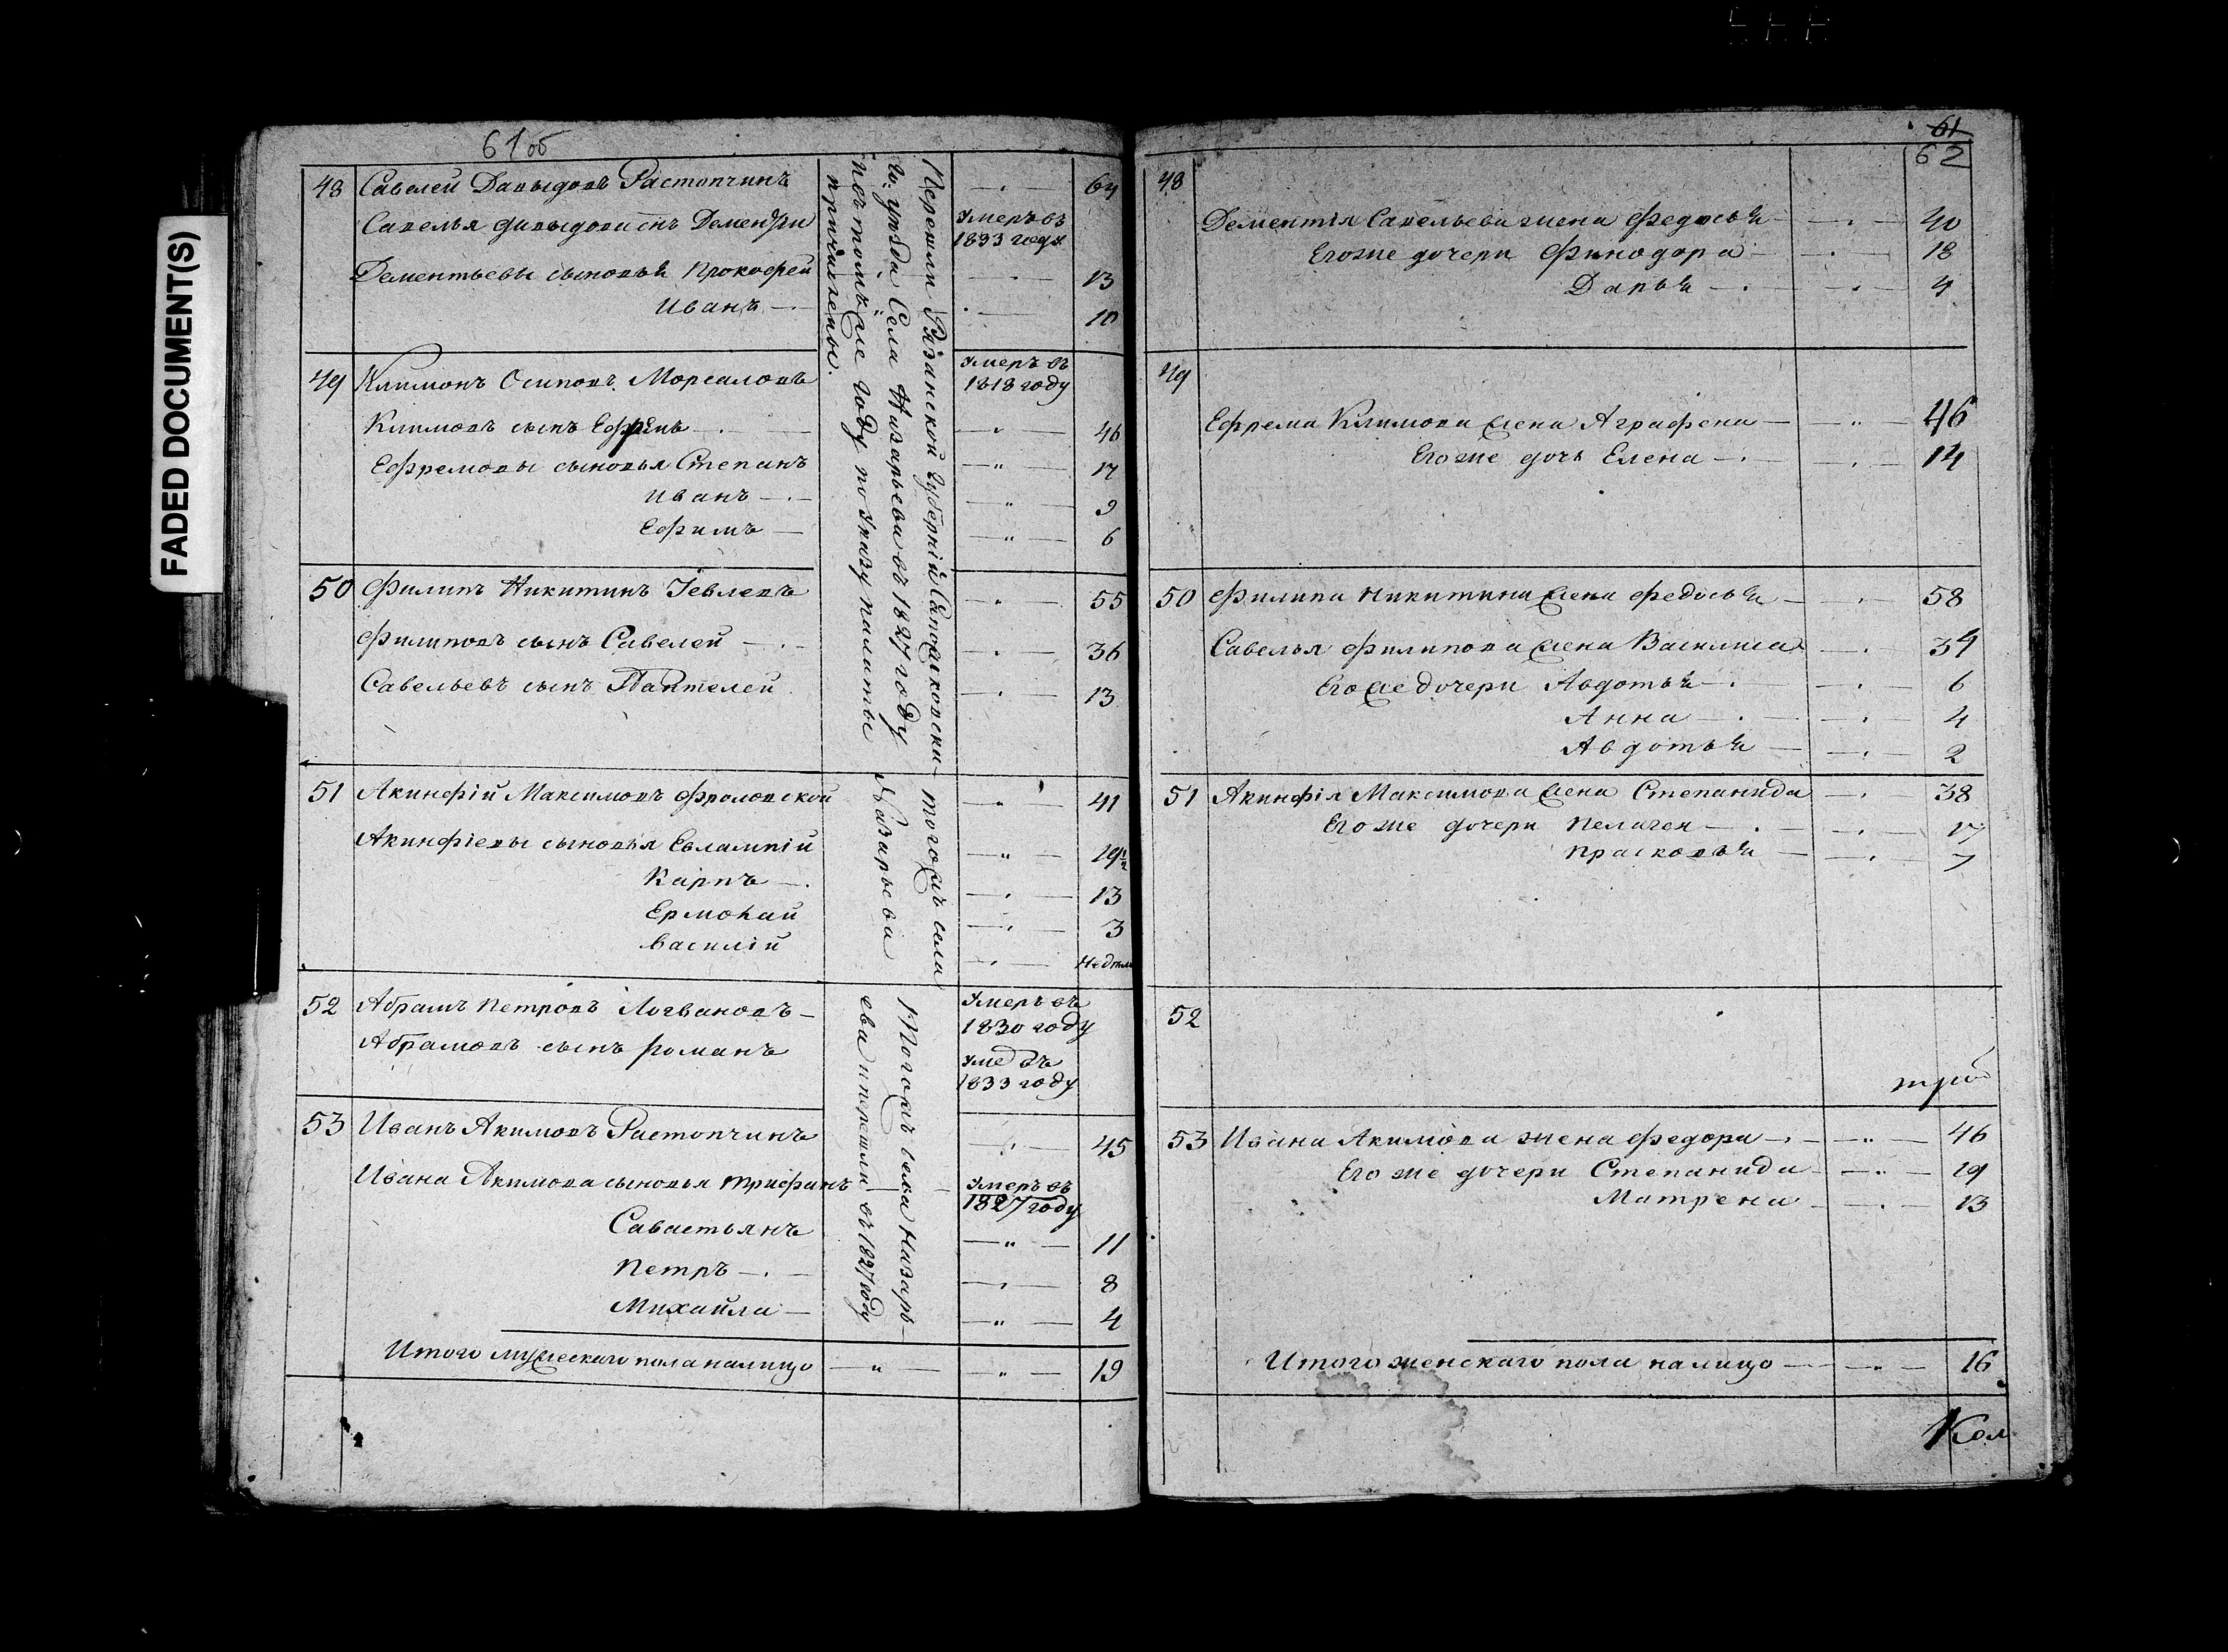 FADED DOCUMENT(S)
61об
48 Савелей Давыдовъ Растопчинъ — 64
Савелья Давыдова сынъ Дементiи Умеръ въ
1833 году
Дементьевы сыновья Прокофей — 13
Иванъ — 10
49 Климонъ Осиповъ Морсаловъ Умеръ въ
1818 году
Климовъ сынъ Ефремъ — 46
Ефремовы сыновья Степанъ — 17
Иванъ — 9
Ефимъ — 6
50 Филипъ Никитинъ Iевлевъ — 55
Филиповъ сынъ Савелей — 36
Савельевъ сынъ Пантелей — 13
51 Акинфiй Максимовъ Фроловской — 41
Акинфiевы сыновья Евлампiй — 19½
Карпъ — 13
Ермолай — 3
Василiй — недель
52 Абрамъ Петровъ Логвановъ — Умеръ въ
1830 году
Абрамовъ сынъ Романъ Уме въ
1833 году
53 Иванъ Акимовъ Растопчинъ — 45
Ивана Акимова сыновья Трифанъ Умеръ въ
1827 году
Савастьянъ — 11
Петръ — 8
Михайла — 4
Итого мужескаго пола налицо — 19
Перешли Рязанской Губернiй Сапожковска-
го уезда Села Назарьева въ 1827 году
въ томъ же году по Указу палаты
причисленые.
того жъ села
Назарьева
того жъ села Назарь-
ева и перешли въ 1827 году
61
62
48
Дементiя Савельева жена Федосья — 40
Его же дочери Финодора — 18
Дарья — 4
49
Ефрема Климова жена Аграфена — 46
Его же дочь Елена — 14
50 Филипа Никитина жена Федосья — 58
Савелья Филипова жена Василиса — 34
Его же дочери Авдотья — 6
Анна — 4
Авдотья — 2
51 Акинфiя Максимова жена Степанида — 38
Его же дочери Пелагея — 17
Прасковья — 7
52
53 Ивана Акимова жена Федора — 46
Его же дочери Степанида — 19
Матрена — 13
Итого женскаго пола налицо — 16
Кол